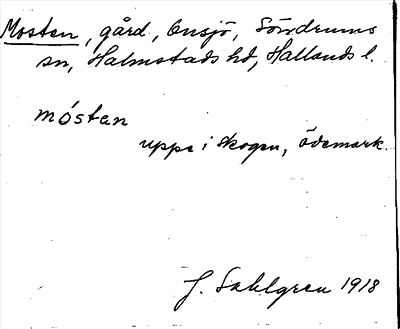 Mosten, gård, Onsjö, Söndrums
sn, Halmstads hd, Hallands l.
móstan
uppe i skogen, ödemark.
J. Sahlgren 1918